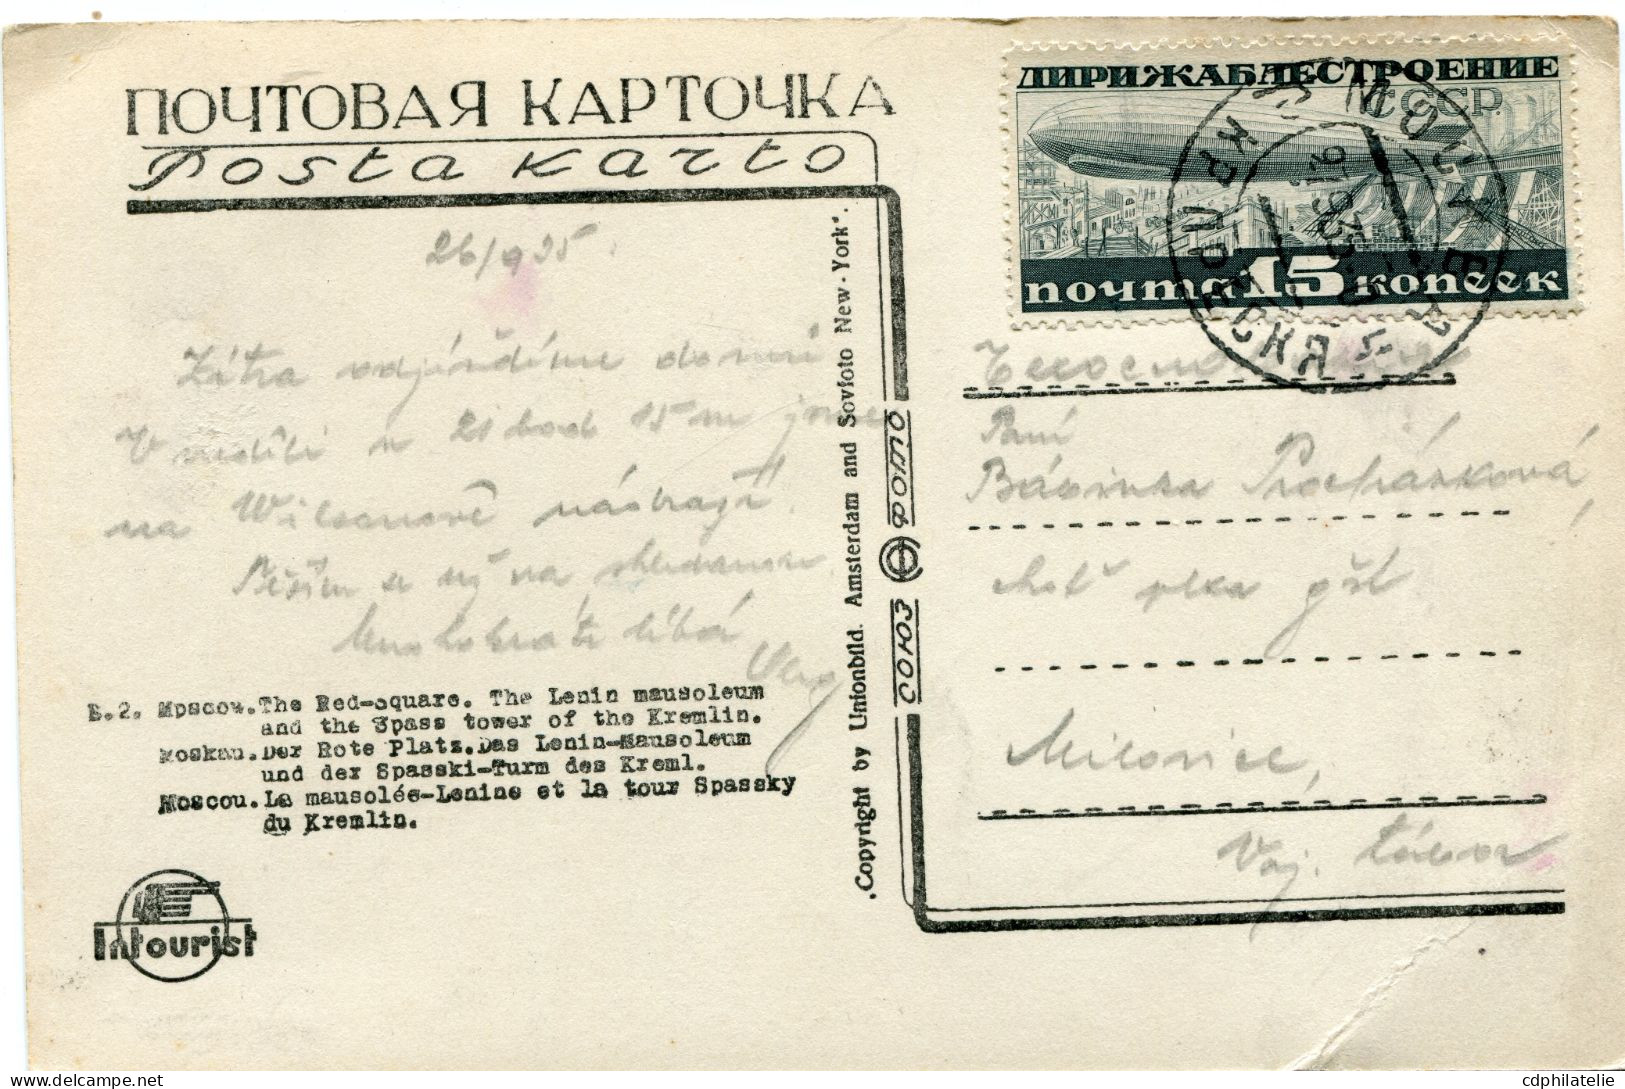 ПОЧТОВАЯ КАРТОЧКА
Posta karto
26/9 35
Zítra odjíždíme domů
V neděli v 21 hod 15 m jsme
na Wilsonově nádraží.
Těším se na shledanou
Mnohokráte líbá
B.2. Moscow. The Red-square. The Lenin mausoleum
and the Spass tower of the Kremlin.
Moskau. Der Rote Platz. Das Lenin-Mausoleum
und der Spasski-Turm des Kreml.
Moscou. La mausolée-Lenine et la tour Spassky
du Kremlin.
Intourist
Copyright by Unionbild. Amsterdam and Sovfoto New-York".
СОЮЗ ФОТО
ДИРИЖАБЛЕСТРОЕНИЕ
СССР
почта 15 копеек
МОСКВА
Paní
Procházková
choť
Milovice,
Tábor
cdphilatelie